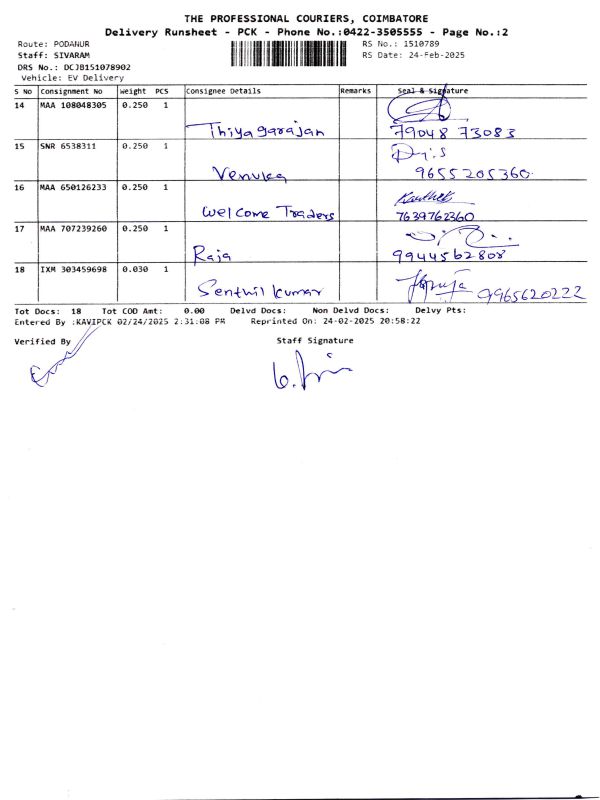 THE PROFESSIONAL COURIERS, COIMBATORE
Delivery Runsheet - PCK - Phone No.:0422-3505555 - Page No.:2
Route: PODANUR RS No.: 1510789
Staff: SIVARAM RS Date: 24-Feb-2025
DRS No.: DCJB151078902
Vehicle: EV Delivery
S No Consignment No Weight PCS Consignee Details Remarks Seal & Signature
14 MAA 108048305 0.250 1
Thiyagarajan 79048 73083
15 SNR 6538311 0.250 1
Venuka 9655205360
16 MAA 650126233 0.250 1
Welcome Traders 7639762360
17 MAA 707239260 0.250 1
Raja 9944562808
18 IXM 303459698 0.030 1
Senthil kumar 9965620222
Tot Docs: 18 Tot COD Amt: 0.00 Delvd Docs: Non Delvd Docs: Delvy Pts:
Entered By :KAVIPCK 02/24/2025 2:31:08 PM Reprinted On: 24-02-2025 20:58:22
Verified By Staff Signature